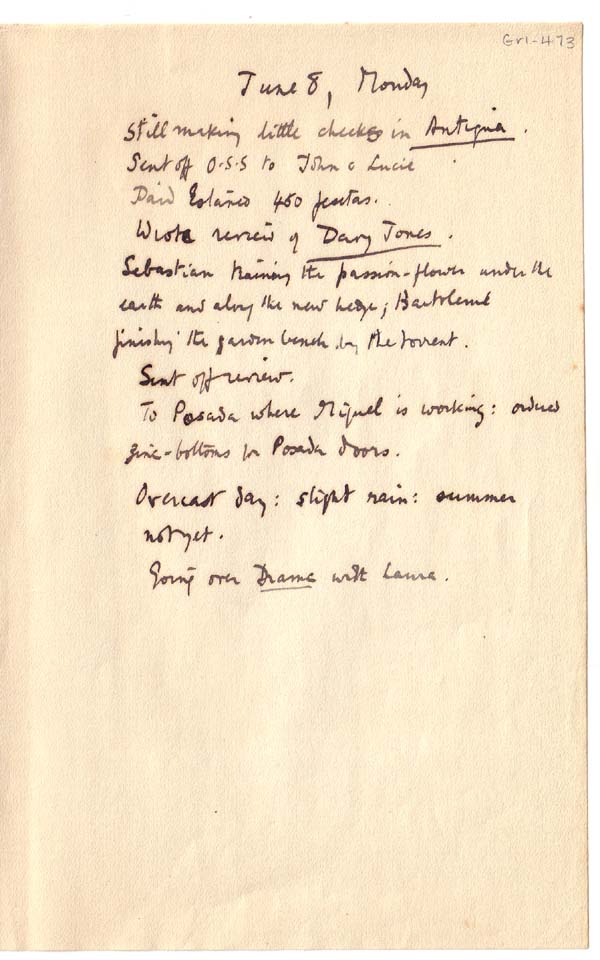 Gr1-473
June 8, Monday
Still making little checks in Antigua.
Sent off O.S.S to John & Lucie
Paid Estanco 450 pesetas.
Wrote review of Davy Jones.
Sebastian training the passion-flower under the
earth and along the new hedge; Bartolemé
finishing the garden bench by the torrent.
Sent off review.
To Posada where Miguel is working: ordered
zinc-bottoms for Posada doors.
Overcast day: slight rain: summer
not yet.
Going over Drama with Laura.